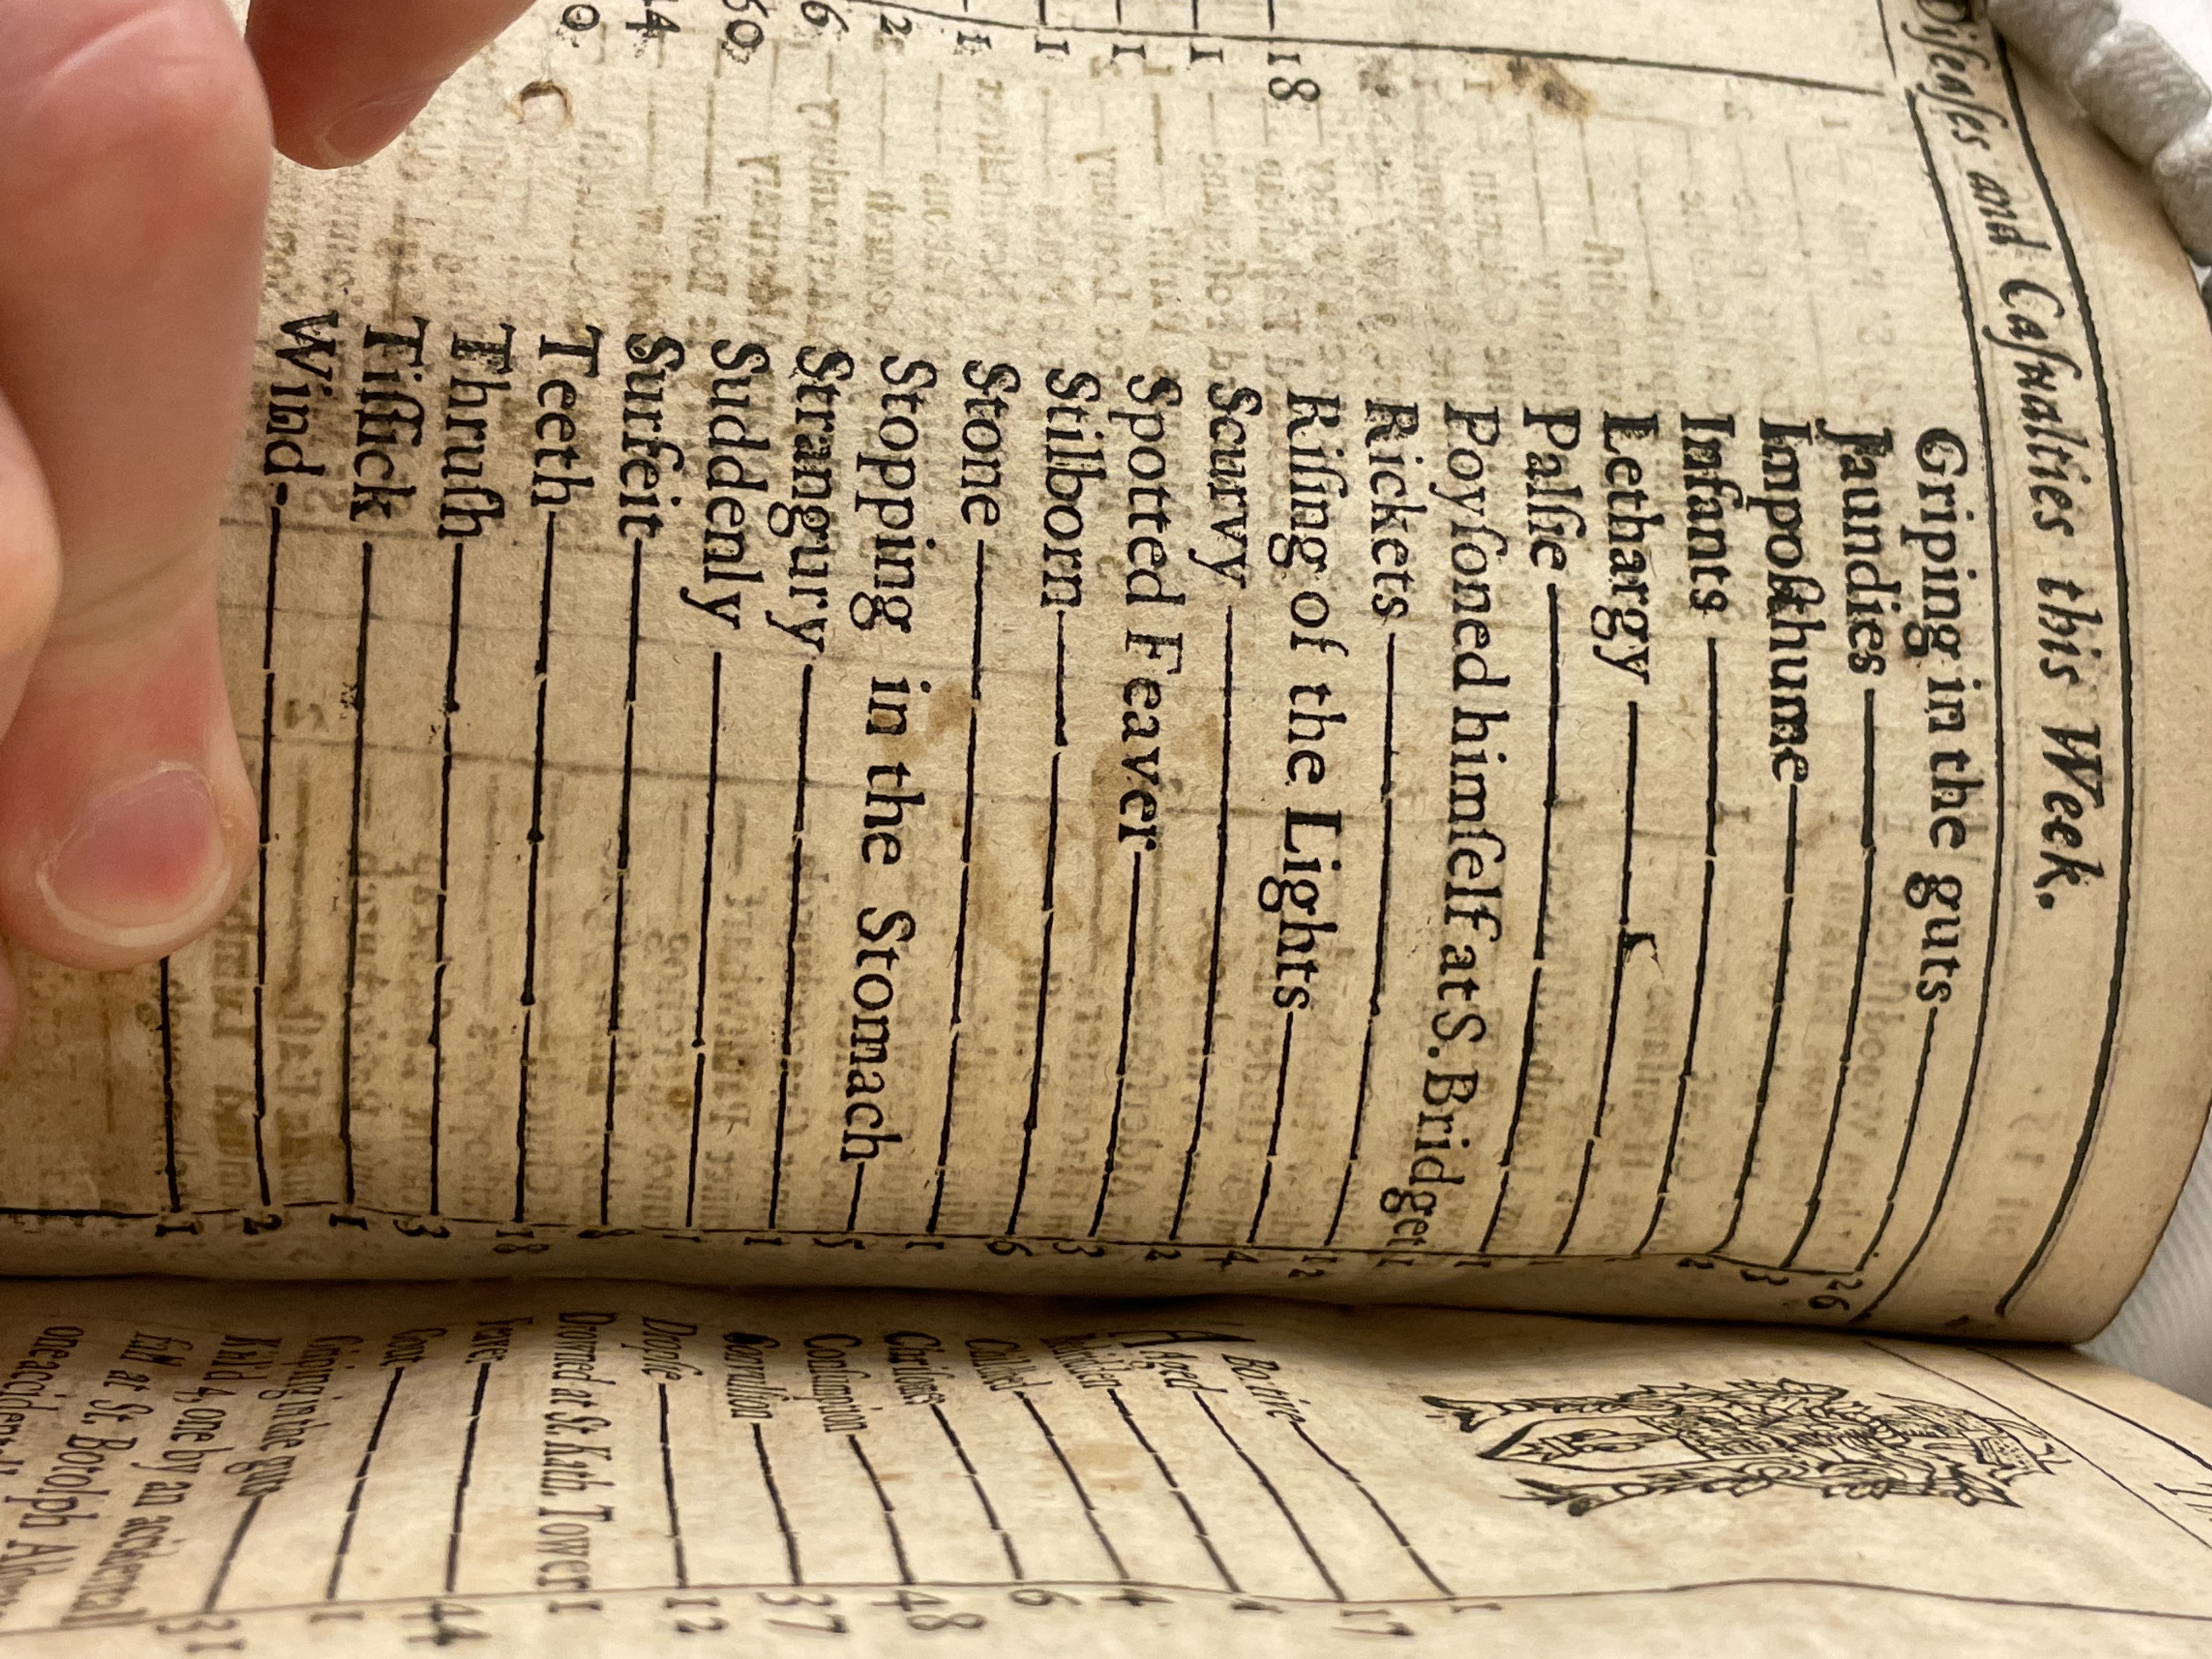 Diſeaſes and Caſualties this Week.
18
1
1
1
1
2
6
Griping in the guts 26
Jaundies 3
Impoſthume 2
Infants 1
Lethargy 1
Palſie 1
Poyſoned himſelf at S. Bridget 1
Rickets 12
Riſing of the Lights 4
Scurvy 2
Spotted Feaver 3
Stilborn 6
Stone 1
Stopping in the Stomach 5
Strangury 1
Suddenly 1
Surfeit 8
Teeth 18
Thruſh 3
Tiſſick 1
Wind 2
1
ABortive 1
Aged 17
Childbed 4
Chriſomes 6
Conſumption 48
Convulſion 37
Dropſie 12
Drowned at St. Kath. Tower 1
Feaver 44
Gout 1
Griping in the guts 31
Kild 4, one by an accidental
fall at St. Botolph
one